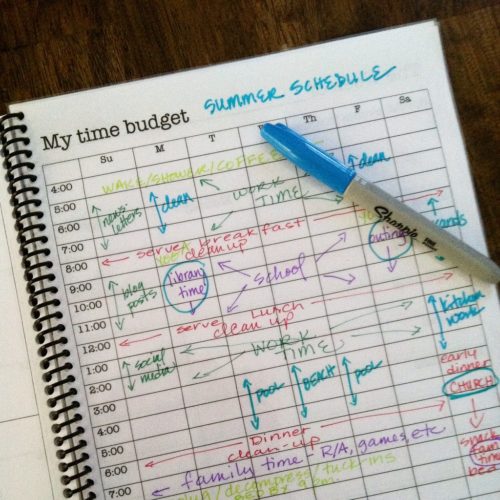 SUMMER SCHEDULE
My time budget
Su M T Th F Sa
4:00 WAKE/SHOWER/COFFEE
clean
5:00 WORK
TIME
clean
news-
letters
6:00
7:00
serve breakfast
clean up
8:00
YOGA
outings
library
time
school
9:00
blog
posts
10:00
11:00
Lunch
serve
clean up
12:00
WORK
TIME
Kitchen
work
1:00
social
media
early
dinner
2:00
POOL BEACH POOL
CHURCH
3:00
4:00
5:00
Dinner
clean-up
snack
fam
time
6:00
family time: R/A, games, etc
7:00
/decompress/tuck-ins
BED BY 9 pm
Sharpie